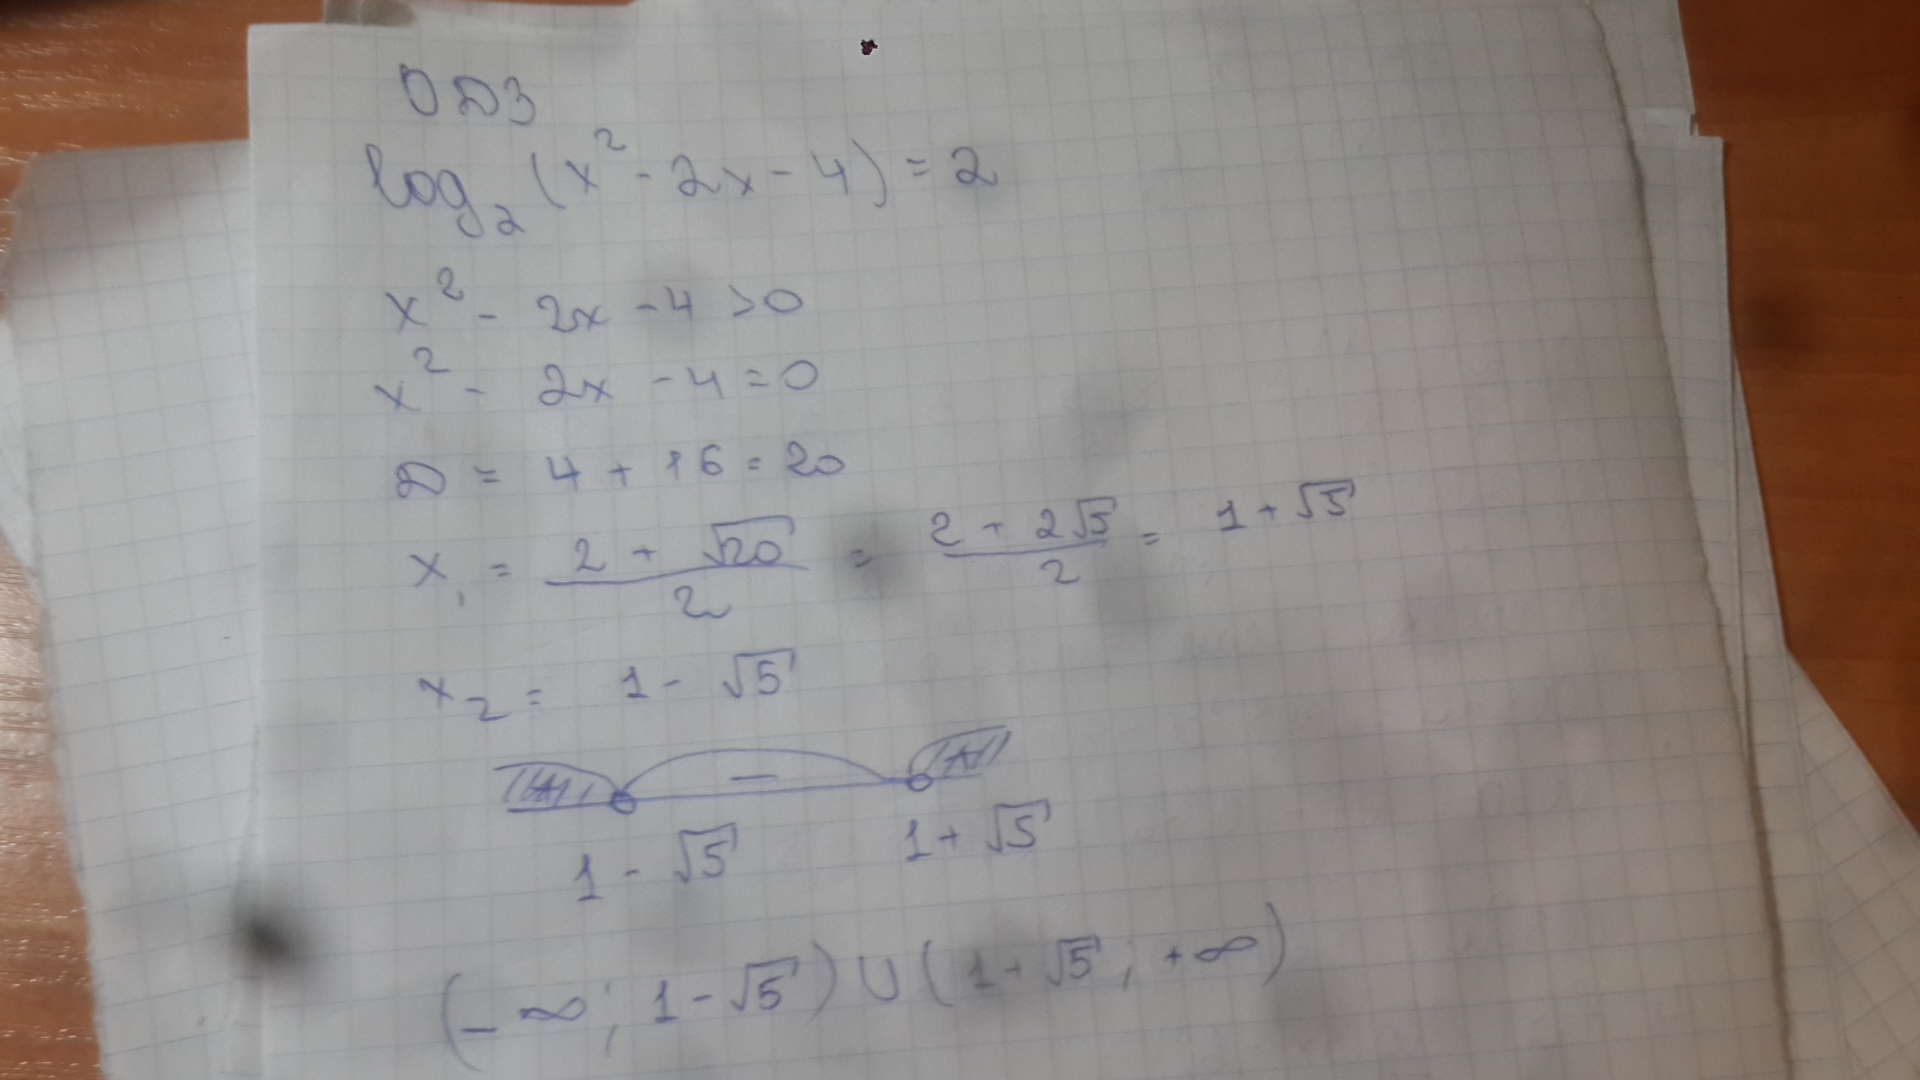 ОДЗ
log₂(x² - 2x - 4) = 2
x² - 2x - 4 > 0
x² - 2x - 4 = 0
D = 4 + 16 = 20
x₁ = (2 + √20)/2 = (2 + 2√5)/2 = 1 + √5
x₂ = 1 - √5
+ − +
1 - √5 1 + √5
(-∞; 1 - √5) ∪ (1 + √5; +∞)